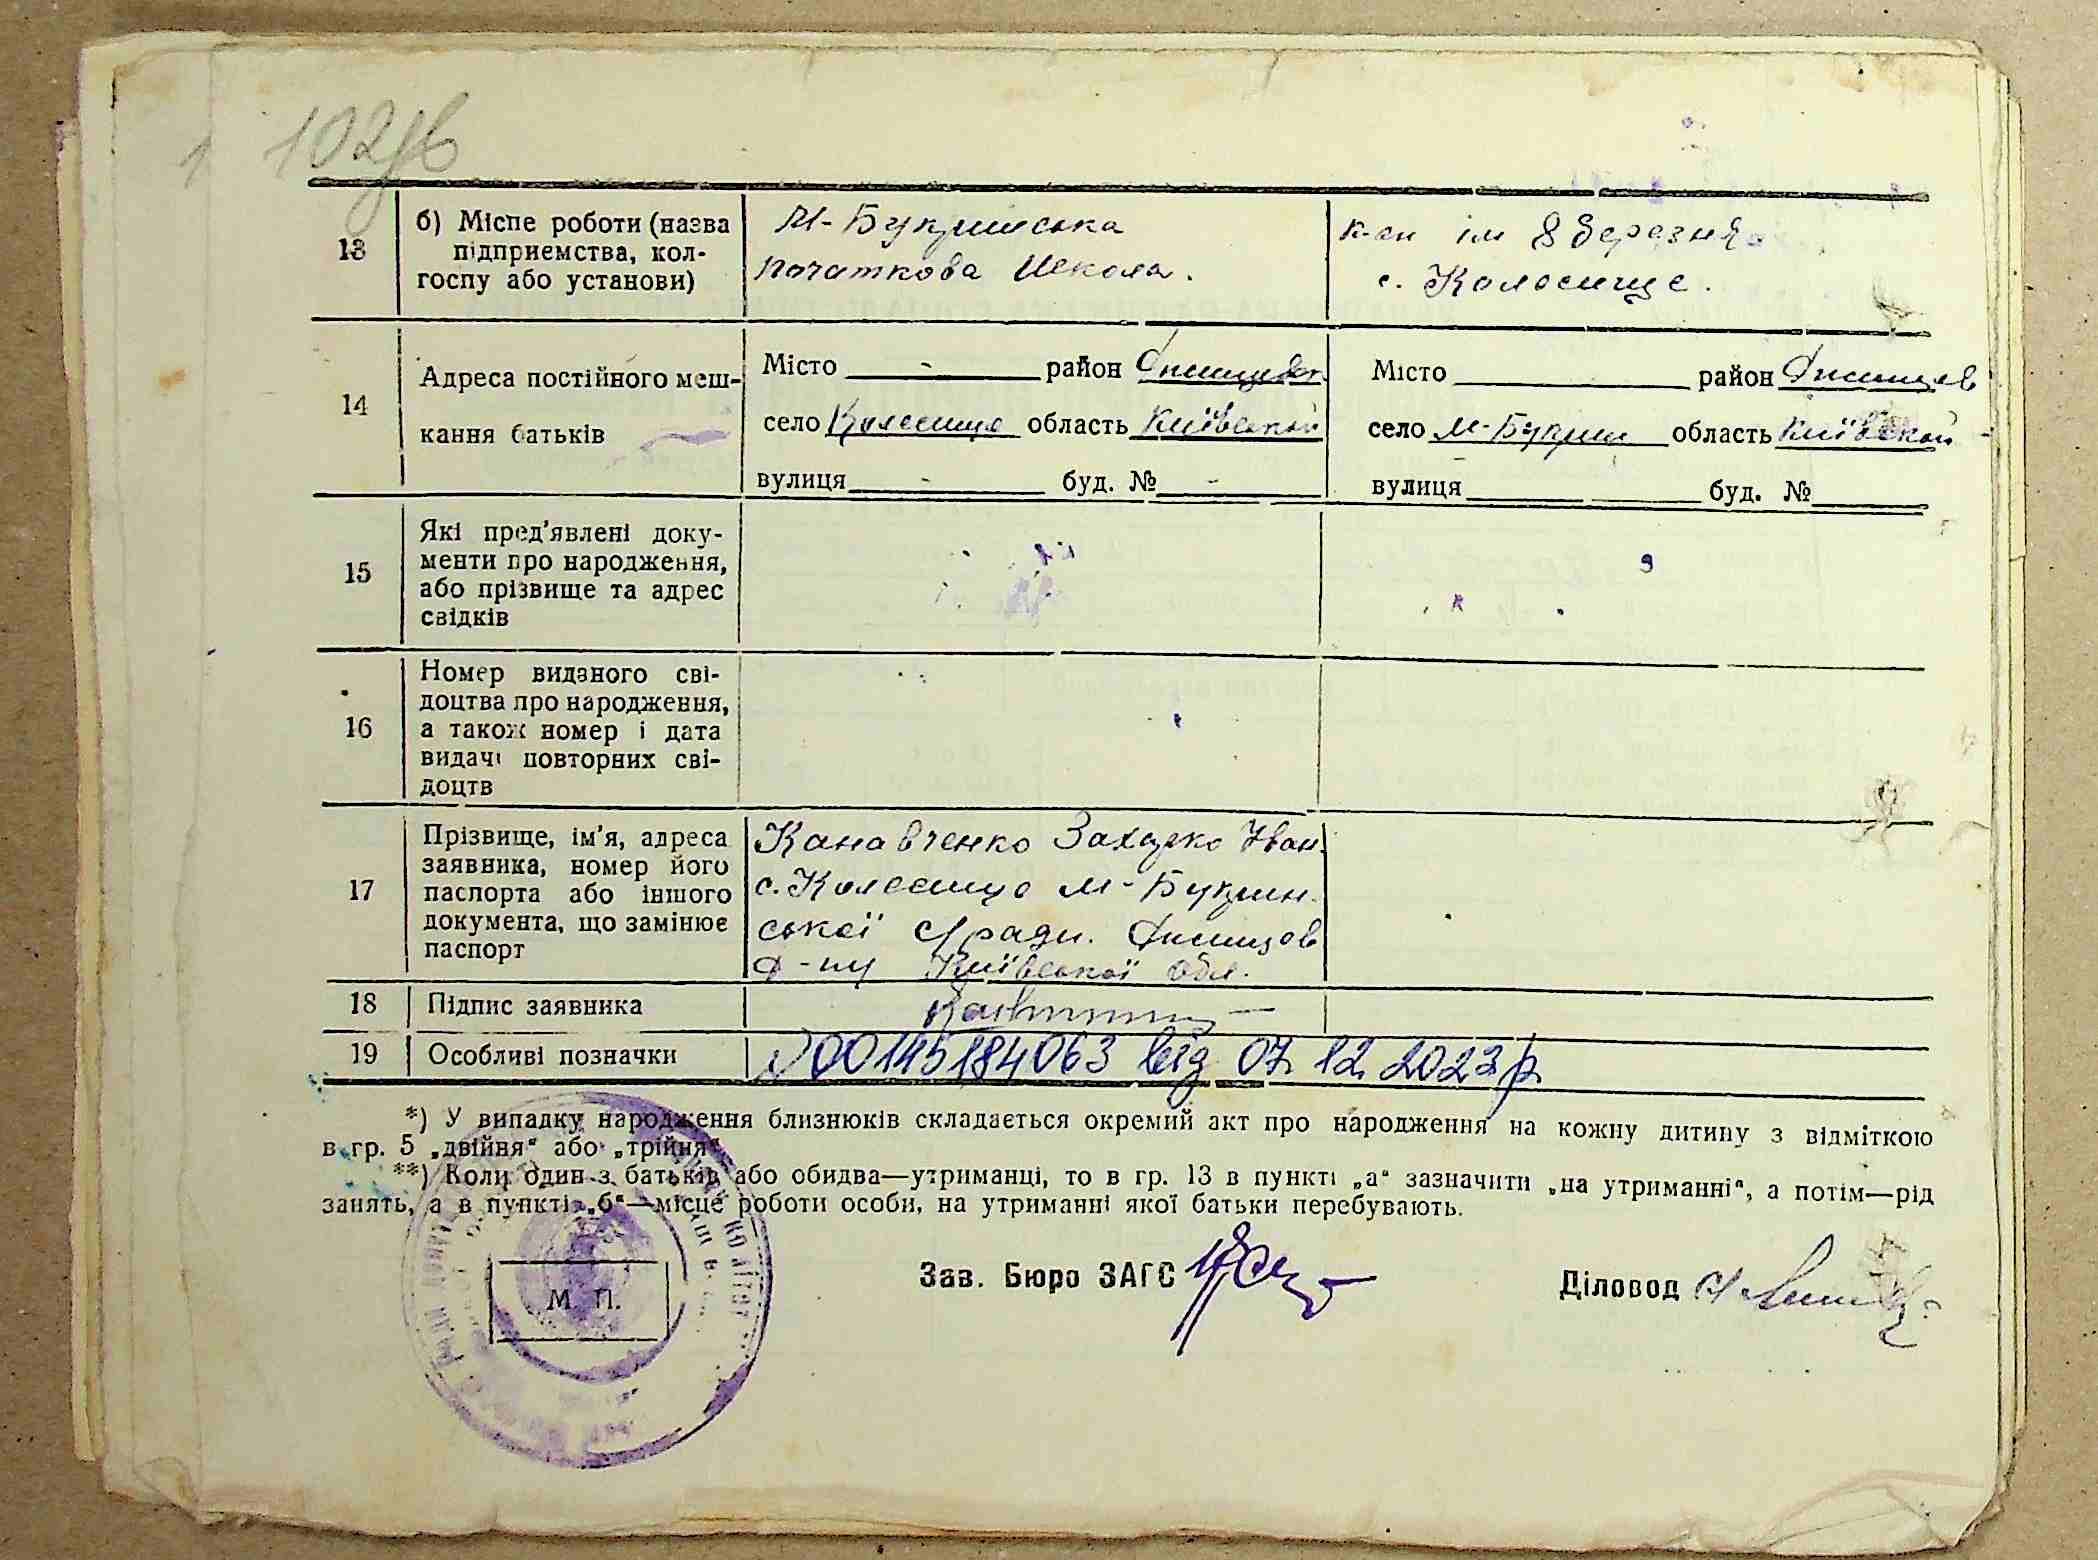 102
13
б) Місце роботи (назва
підприємства, кол-
госпу або установи)
М-Букринська
початкова школа.
к-сп ім 8 березня
с. Колесище.
14
Адреса постійного меш-
кання батьків
Місто - район
село Колесище область Київської
вулиця - буд. № -
Місто район
село М-Букрин область Київской
вулиця буд. №
15
Які пред'явлені доку-
менти про народження,
або прізвище та адрес
свідків
16
Номер виданого сві-
доцтва про народження,
а також номер і дата
видачі повторних сві-
доцтв
17
Прізвище, ім'я, адреса
заявника, номер його
паспорта або іншого
документа, що замінює
паспорт
Канавченко Захарко Іван.
с. Колесище М-Букрин
ської с/ради.
р-ну Київської обл.
18
Підпис заявника
19
Особливі позначки
00145184063 від 07.12.2023 р.
*) У випадку народження близнюків складається окремий акт про народження на кожну дитину з відміткою
в гр. 5 „двійня“ або „трійня“
**) Коли один з батьків або обидва—утриманці, то в гр. 13 в пункті „а“ зазначити „на утриманні“, а потім—рід
занять, а в пункті „б“—місце роботи особи, на утриманні якої батьки перебувають.
М. П.
Зав. Бюро ЗАГС
Діловод